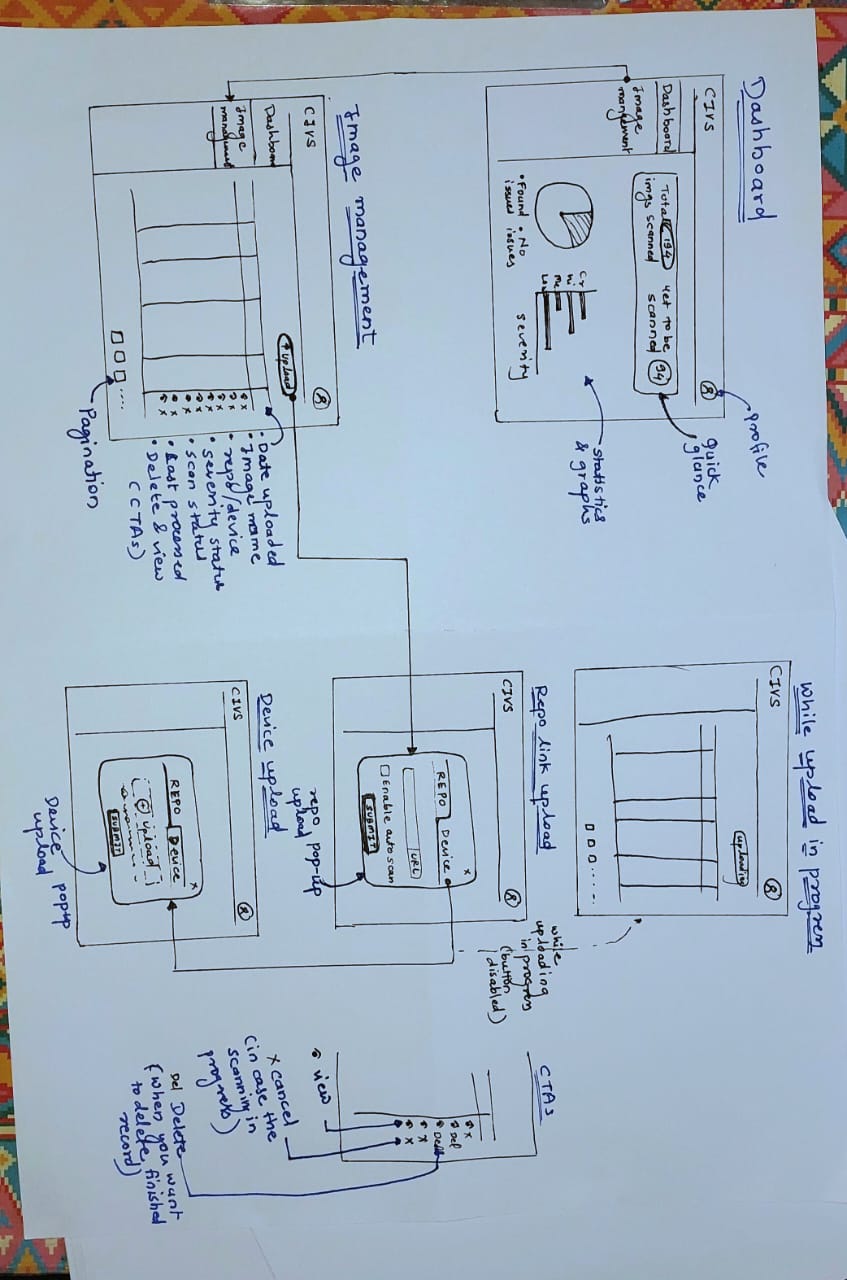 Dashboard
CIVS
Dashboard
Image
mangement
Total 194
imgs scanned
Yet to be
scanned 94
• Found • No
issues issues
Cr
Hi
Me
Low
severity
profile
quick
glance
statistics
& graphs
Image management
CIVS
Dashboard
Image
management
↑ upload
Pagination
• Date uploaded
• Image name
• repo/device
• severity status
• scan status
• Last processed
• Delete & view
(CTAs)
while upload in progress
CIVS
uploading
while
uploading
in progress
(button
disabled)
Repo link upload
CIVS
REPO Device x
URL
Enable auto scan
SUBMIT
repo pop-up
upload
Device upload
CIVS
REPO Device x
+ upload
SUBMIT
Device
upload popup
CTAs
x
Del
x
x
view
x cancel
(in case the
scanning in
progress)
Del Delete
(when you want
to delete finished
record)